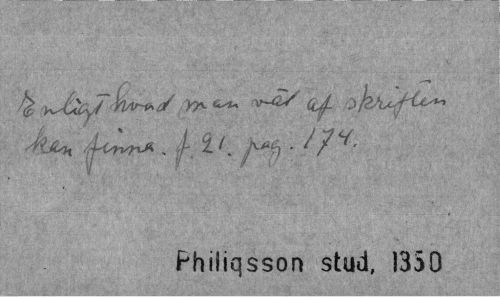 Enligt hvad man väl af skriften
kan finna. f. 21. pag. 174.
Philiqsson stud, 1350